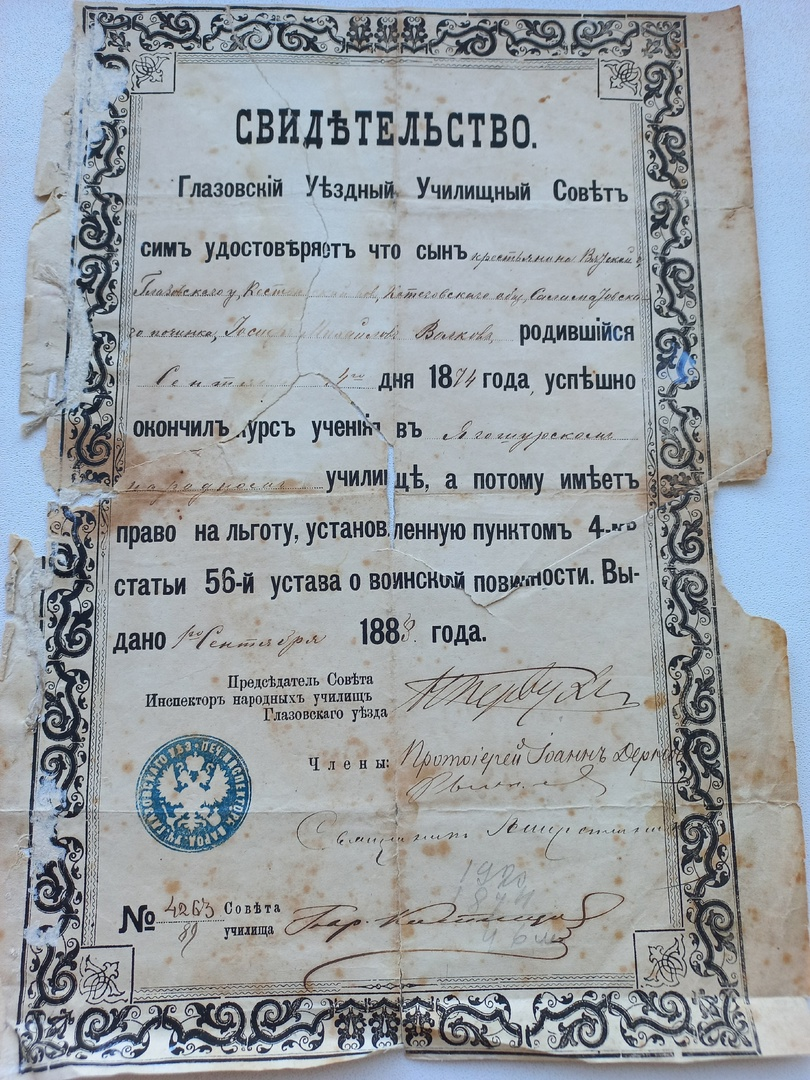 СВИДѢТЕЛЬСТВО.
Глазовскій Уѣздный Училищный Совѣтъ
симъ удостовѣряетъ что сынъ крестьянина Вятской г,
Глазовскаго у,
го починка, Михайловъ Волковъ, родившійся
4го дня 1874 года, успѣшно
окончилъ курсъ ученія въ Ягошурскомъ
народномъ училищѣ, а потому имѣетъ
право на льготу, установленную пунктомъ 4-мъ
статьи 56-й устава о воинской повинности. Вы-
дано 1го Сентября 1883. года.
Предсѣдатель Совѣта
Инспекторъ народныхъ училищъ
Глазовскаго уѣзда
Члены: Протоіерей Іоаннъ
Священникъ
1920
1874
46
№ 4263 Совѣта
89 училища